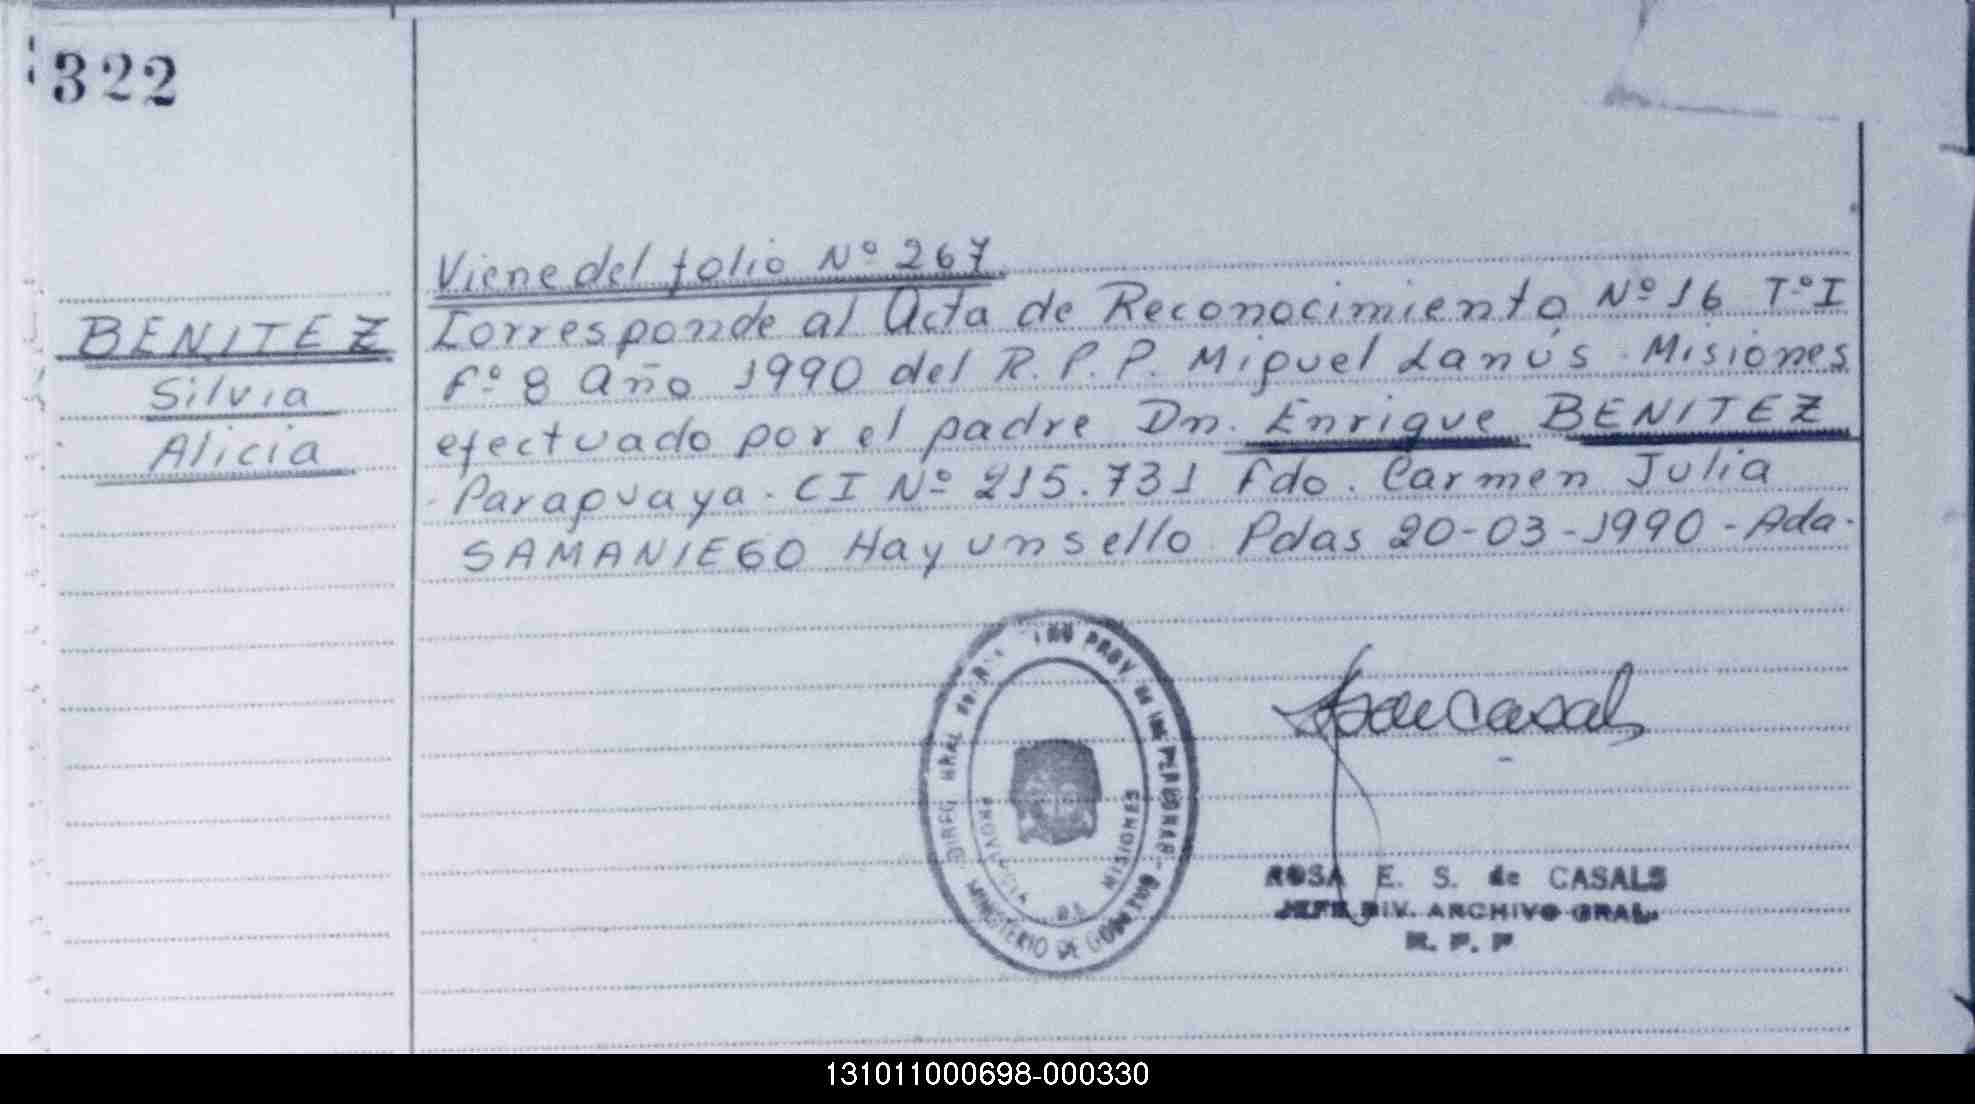 322
BENITEZ
Silvia
Alicia
Viene del folio Nº 267
Corresponde al Acta de Reconocimiento Nº 16 Tº I
Fº 8 Año 1990 del R.P.P. Miguel Lanús. Misiones
efectuado por el padre Dn. Enrique BENITEZ
Paraguaya. CI Nº 215.731 Fdo. Carmen Julia
SAMANIEGO Hay un sello. Pdas 20-03-1990 - Ada.
DIREC GRAL de PROV. de las PERSONAS
MINISTERIO DE GOBIERNO
PROVINCIA DE MISIONES
ROSA E. S. de CASALS
JEFE DIV. ARCHIVO GRAL.
R. P. P
131011000698-000330